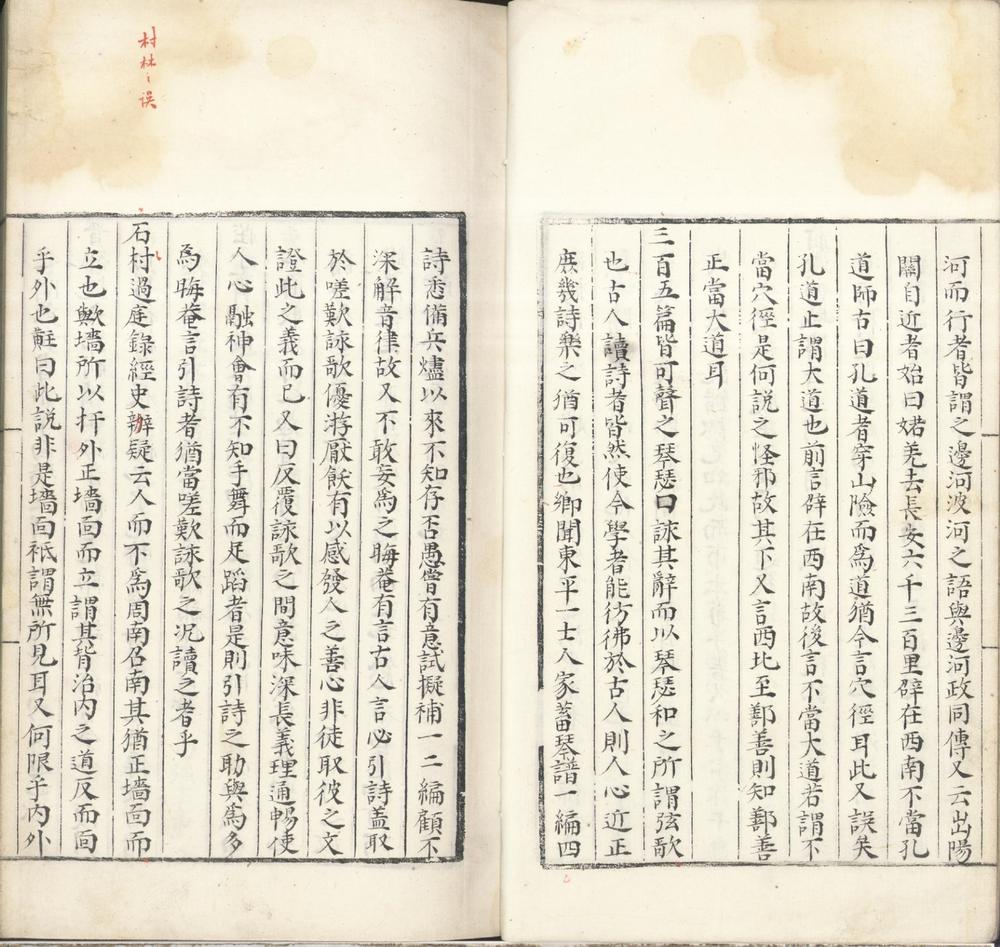 河而行者皆謂之邊河波河之語與邊河政同傳又云出陽
關自近者始曰婼羌去長安六千三百里辟在西南不當孔
道師古曰孔道者穿山險而爲道猶今言穴徑耳此又誤矣
孔道止謂大道也前言辟在西南故後言不當大道若謂不
當穴徑是何說之怪邪故其下又言西北至鄯善則知鄯善
正當大道耳
三百五篇皆可聲之琴瑟口詠其辭而以琴瑟和之所謂弦歌
也古人讀詩者皆然使今學者能彷彿於古人則人心近正
庶幾詩樂之猶可復也鄉聞東平一士人家蓄琴譜一編四
詩悉備兵燼以來不知存否愚嘗有意試擬補一二編顧不
深解音律故又不敢妄爲之晦菴有言古人言必引詩盖取
於嗟歎詠歌優游厭飫有以感發人之善心非徒取彼之文
證此之義而已又曰反覆詠歌之間意味深長義理通暢使
人心融神會有不知手舞而足蹈者是則引詩之助與爲多
爲晦菴言引詩者猶當嗟歎詠歌之况讀之者乎
石村過庭錄經史辨疑云人而不爲周南召南其猶正墻面而
立也歟墻所以扞外正墻面而立謂其背治内之道反而面
乎外也黈曰此說非是墻面祇謂無所見耳又何限乎内外
村林之誤